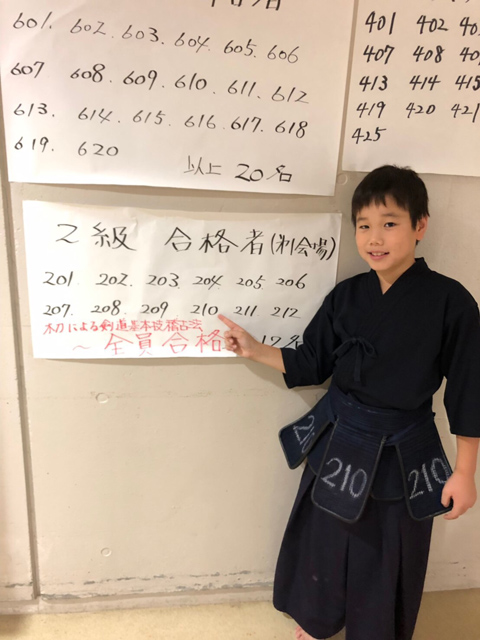 601. 602. 603. 604. 605. 606
607 608. 609. 610. 611. 612
613. 614. 615. 616. 617. 618
619. 620
以上 20名
401 402
407 408
413 414 415
419 420 421
425
2級 合格者(米川会場)
201. 202. 203. 204. 205. 206
207. 208. 209. 210. 211. 212
木刀による剣道基本技稽古法
~全員合格 12名
210 210